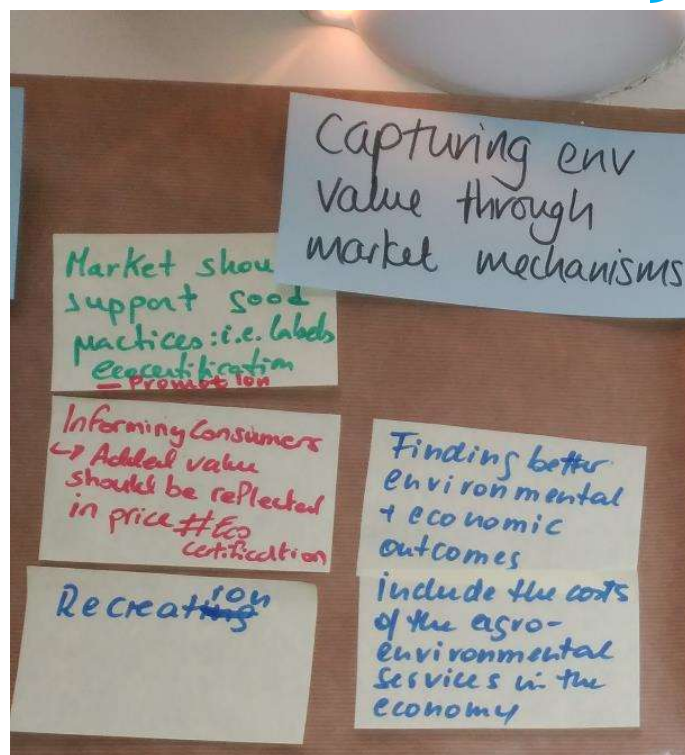 Capturing env
value through
market mechanisms
Market shou
support good
practices: i.e. labels
ecocertification
– Promotion
Informing Consumers
↳ Added value
should be reflected
in price #Eco
certification
Recreation
Finding better
environmental
+ economic
outcomes
include the costs
of the agro-
environmental
services in the
economy